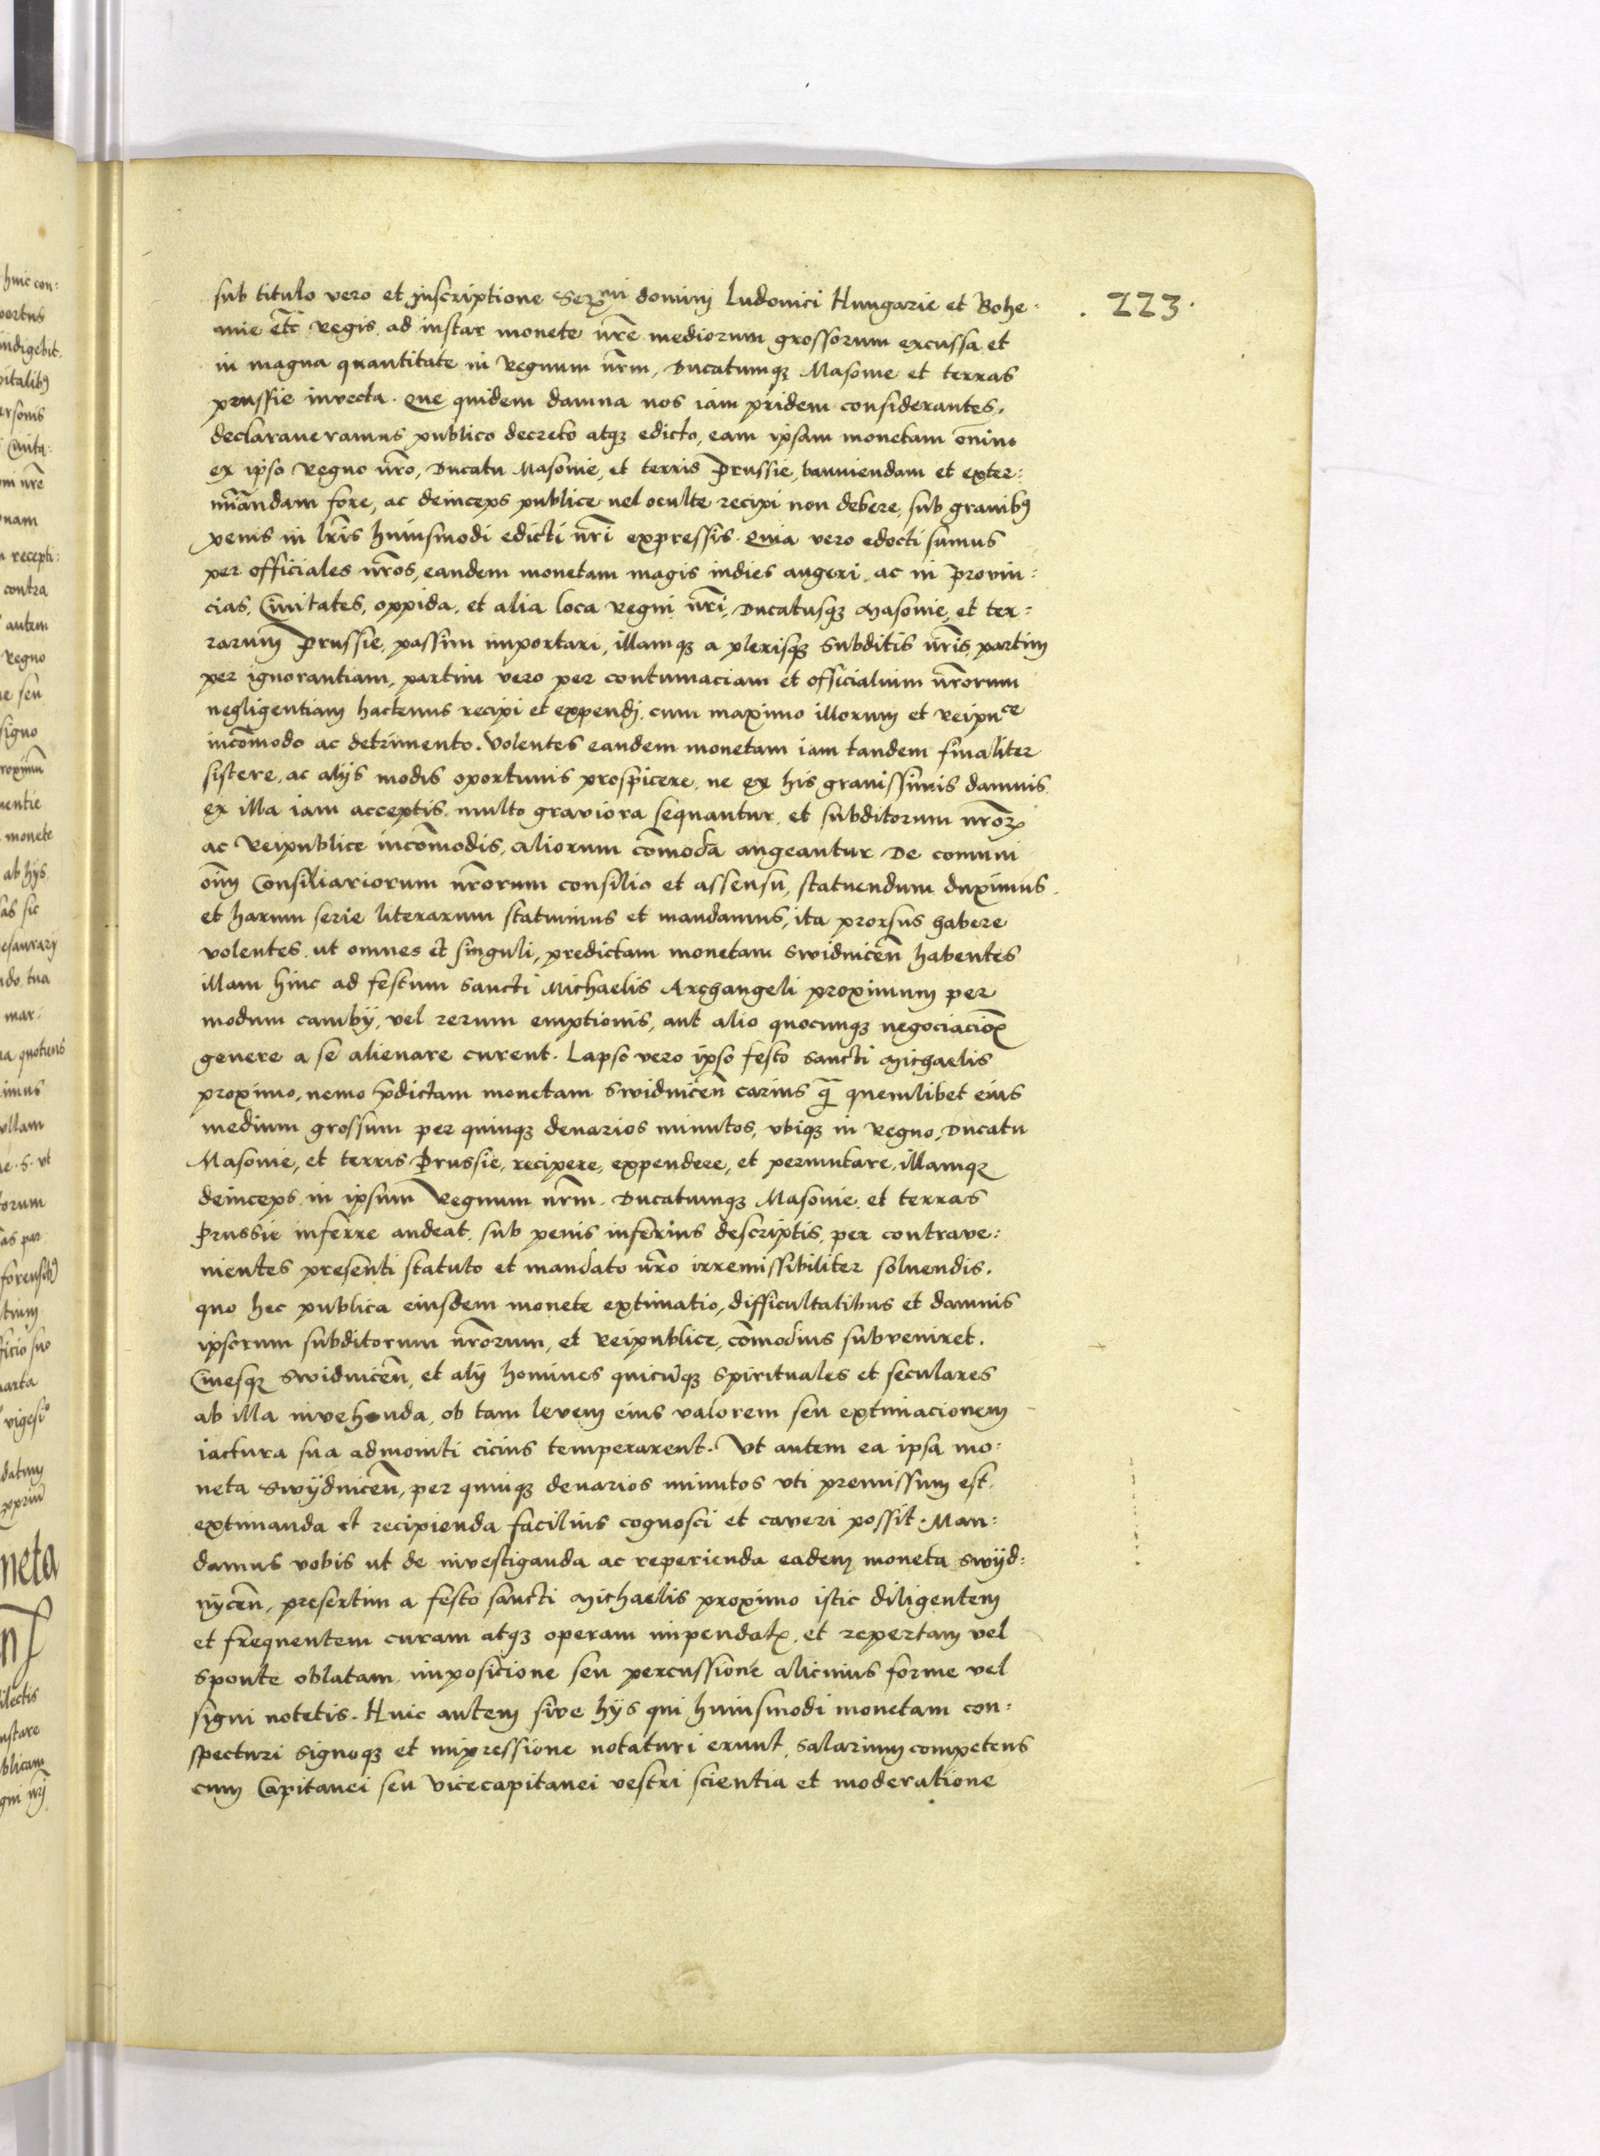 sub titulo vero et inscriptione Ser^mi domini Ludovici Hungarie et Bohe:
. 223 .
mie etc̃ Regis, ad instar monete nr̃e mediorum grossorum excussa, et
in magna quantitate in Regnum nr̃m, Ducatumqꝫ Masovie et terras
prussie invecta. Que quidem damna nos iam pridem considerantes,
declaraveramus publico decreto atqꝫ edicto, eam ipsam monetam om̃ino
ex ipso Regno nr̃o, Ducatu Masovie, et terris Prussie, banniendam et exter:
mĩandam fore, ac deinceps publice vel oculte recipi non debere, sub gravibꝰ
penis in lr̃is huiusmodi edicti nr̃i expressis. Quia vero edocti sumus
per officiales nr̃os, eandem monetam magis indies augeri, ac in Provin:
cias, Civitates, oppida, et alia loca Regni nr̃i, Ducatusqꝫ Masovie, et ter:
rarum Prussie, passim importari, illamqꝫ a plerisqꝫ subditis nr̃is, partim
per ignorantiam, partim vero per contumaciam et officialium nr̃orum
negligentiam hactenus recipi et expendi, cum maximo illorum et Reipu^ce
incom̃odo ac detrimento. Volentes eandem monetam iam tandem finaliter
sistere, ac alijs modis oportunis prospicere, ne ex his gravissimis damnis
ex illa iam acceptis, multo graviora sequantur, et subditorum nr̃oꝝ
ac Reipublice incom̃odis, aliorum com̃oda augeantur. De comuni
oĩm Consiliariorum nr̃orum consilio et assensu, statuendum duximus,
et harum serie literarum statuimus et mandamus, ita prorsus habere
volentes, ut omnes et singuli, predictam monetam Swidniceñ habentes
illam hinc ad festum Sancti Michaelis Archangeli proximum per
modum cambij, vel rerum emptionis, aut alio quocunqꝫ negociacioꝝ
genere a se alienare curent. Lapso vero ipso festo Sancti Michaelis
proximo, nemo p̃dictam monetam Swidniceñ carius q̃ quemlibet eius
medium grossum per quinqꝫ denarios minutos, ubiqꝫ in Regno, Ducatu
Masovie, et terris Prussie, recipere, expendere, et permutare, illamqꝫ
deinceps in ipsum Regnum nr̃m, Ducatumqꝫ Masovie, et terras
Prussie inferre audeat, sub penis inferius descriptis, per contrave:
nientes presenti statuto et mandato nr̃o irremissibiliter solvendis.
quo hec publica eiusdem monete extimatio, difficultatibus et damnis
ipsorum subditorum nr̃orum, et Reipublice, com̃odius subveniret.
Civesqꝫ Swidniceñ, et alij homines quicũqꝫ Spirituales et seculares
ab illa invehenda, ob tam levem eius valorem seu extimacionem
iactura sua admoniti cicius temperarent. Ut autem ea ipsa mo:
neta Swijdniceñ, per quinqꝫ denarios minutos uti premissum est,
extimanda et recipienda facilius cognosci et caveri possit. Man:
damus vobis ut de investiganda ac reperienda eadem moneta Swijd:
nyceñ, presertim a festo sancti Michaelis proximo istic diligentem
et frequentem curam atqꝫ operam impendatꝭ, et repertam vel
sponte oblatam, imposicione seu percussione alicuius forme vel
signi notetis. Huic autem sive hijs qui huiusmodi monetam con:
specturi signoqꝫ et impressione notaturi erunt, salarium competens
cum Capitanei seu Vicecapitanei vestri scientia et moderatione